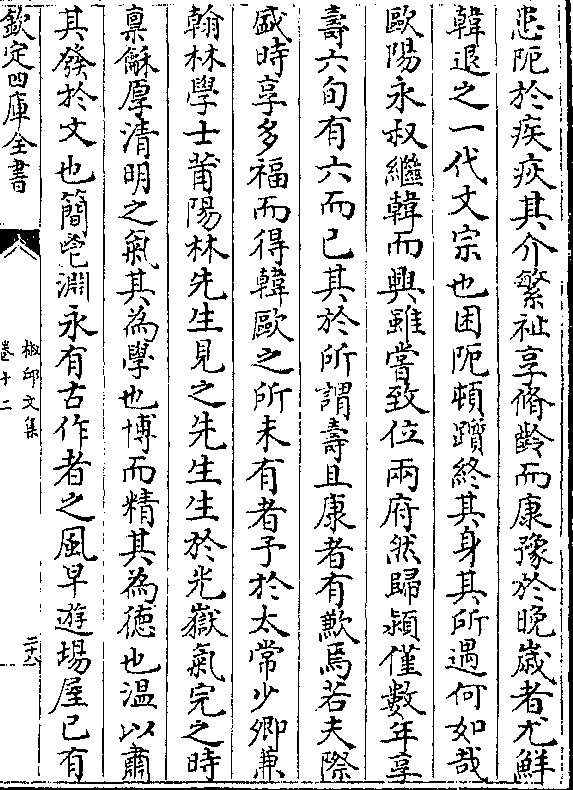 患阨於疾疢其介繁祉享脩齡而康豫於晚嵗者尤鮮
韓退之一代文宗也困阨頓躓終其身其所遇何如哉
歐陽永叔繼韓而興雖嘗致位兩府然歸潁僅數年享
壽六旬有六而已其於所謂壽且康者有歉焉若夫際
盛時享多福而得韓歐之所未有者予於太常少卿兼
翰林學士莆陽林先生見之先生生於光嶽氣完之時
禀龢厚清明之氣其為學也博而精其為徳也温以肅
其發於文也簡嵬淵永有古作者之風早遊塲屋已有
欽定四庫全書
椒邱文集
卷十二
二十六